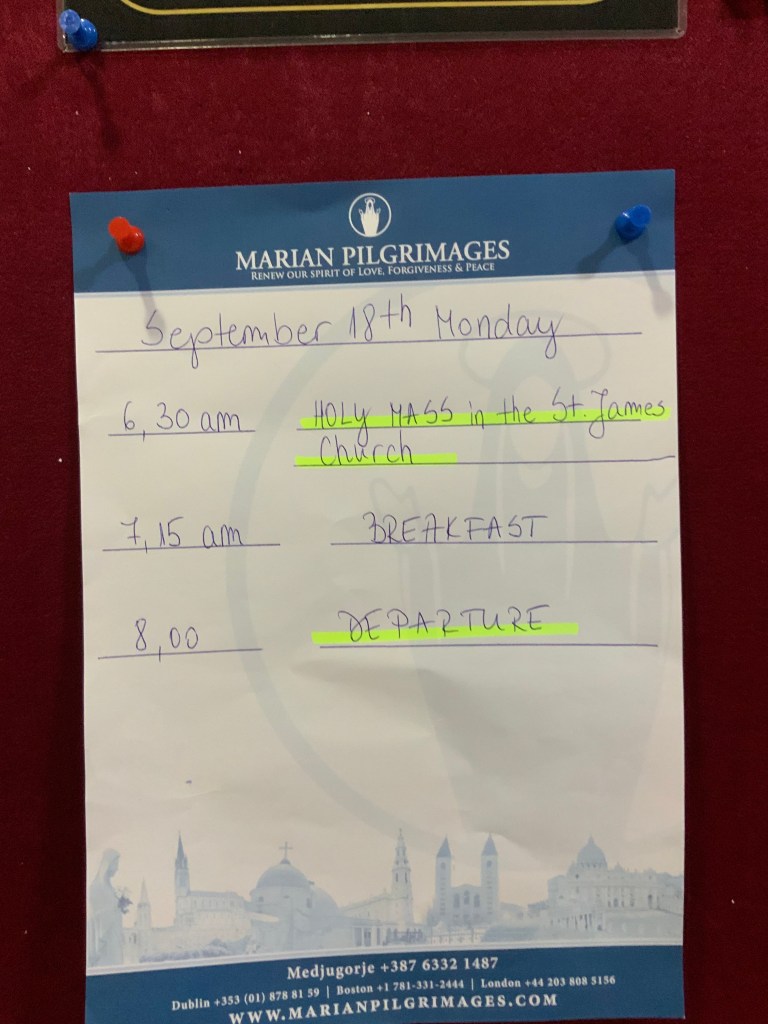 MARIAN PILGRIMAGES
RENEW OUR SPIRIT OF LOVE, FORGIVENESS & PEACE
September 18th Monday
6,30 am HOLY MASS in the St. James
Church
7,15 am BREAKFAST
8,00 DEPARTURE
Medjugorje +387 6332 1487
Dublin +353 (01) 878 81 59 | Boston +1 781-331-2444 | London +44 203 808 5156
WWW.MARIANPILGRIMAGES.COM